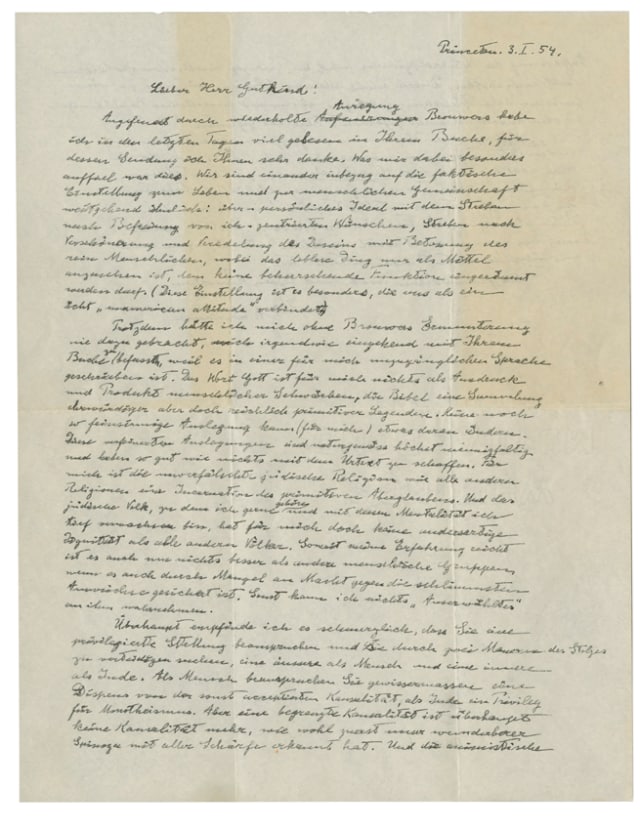 Princeton. 3. I. 54.
Lieber Herr Gutkind!
Anregung
Angefeuert durch wiederholte Brouwers habe
ich in den letzten Tagen viel gelesen in Ihrem Buche, für
dessen Sendung ich Ihnen sehr danke. Was mir dabei besonders
auffiel war dies. Wir sind einander inbezug auf die faktische
Einstellung zum Leben und zur menschlichen Gemeinschaft
weitgehend ähnlich: über-persönliches Ideal mit dem Streben
nach Befreiung von ich-zentrierten Wünschen, Streben nach
Verschönerung und Veredelung des Daseins mit Betonung des
rein Menschlichen, wobei das leblose Ding nur als Mittel
anzusehen ist, dem keine beherrschende Funktion eingeräumt
werden darf. (Diese Einstellung ist es besonders, die uns als ein
echt „unamerican attitude“ verbindet)
Trotzdem hätte ich mich ohne Brouwers Ermunterung
nie dazu gebracht, mich irgendwie eingehend mit Ihrem
Buche zu befassen, weil es in einer für mich unzugänglichen Sprache
geschrieben ist. Das Wort Gott ist für mich nichts als Ausdruck
und Produkt menschlicher Schwächen, die Bibel eine Sammlung
ehrwürdiger aber doch reichlich primitiver Legenden. Keine noch
so feinsinnige Auslegung kann (für mich) etwas daran ändern.
Diese verfeinerten Auslegungen sind naturgemäss höchst mannigfaltig
und haben so gut wie nichts mit dem Urtext zu schaffen. Für
mich ist die unverfälschte jüdische Religion wie alle anderen
Religionen eine Incarnation des primitiven Aberglaubens. Und das
jüdische Volk, zu dem ich gern gehöre und mit dessen Mentalität ich
tief verwachsen bin, hat für mich doch keine andersartige
Dignität als alle anderen Völker. Soweit meine Erfahrung reicht
ist es auch um nichts besser als andere menschliche Gruppen,
wenn es auch durch Mangel an Macht gegen die schlimmsten
Auswüchse gesichert ist. Sonst kann ich nichts „Auserwähltes“
an ihm wahrnehmen.
Überhaupt empfinde ich es schmerzlich, dass Sie eine
privilegierte Stellung beanspruchen und sie durch zwei Mauern des Stolzes
zu verteidigen suchen, eine äussere als Mensch und eine innere
als Jude. Als Mensch beanspruchen Sie gewissermassen einen
Dispens von der sonst acceptierten Kausalität, als Jude ein Privileg
für Monotheismus. Aber eine begrenzte Kausalität ist überhaupt
keine Kausalität mehr, wie wohl zuerst unser wunderbarer
Spinoza mit aller Schärfe erkannt hat. Und die animistische